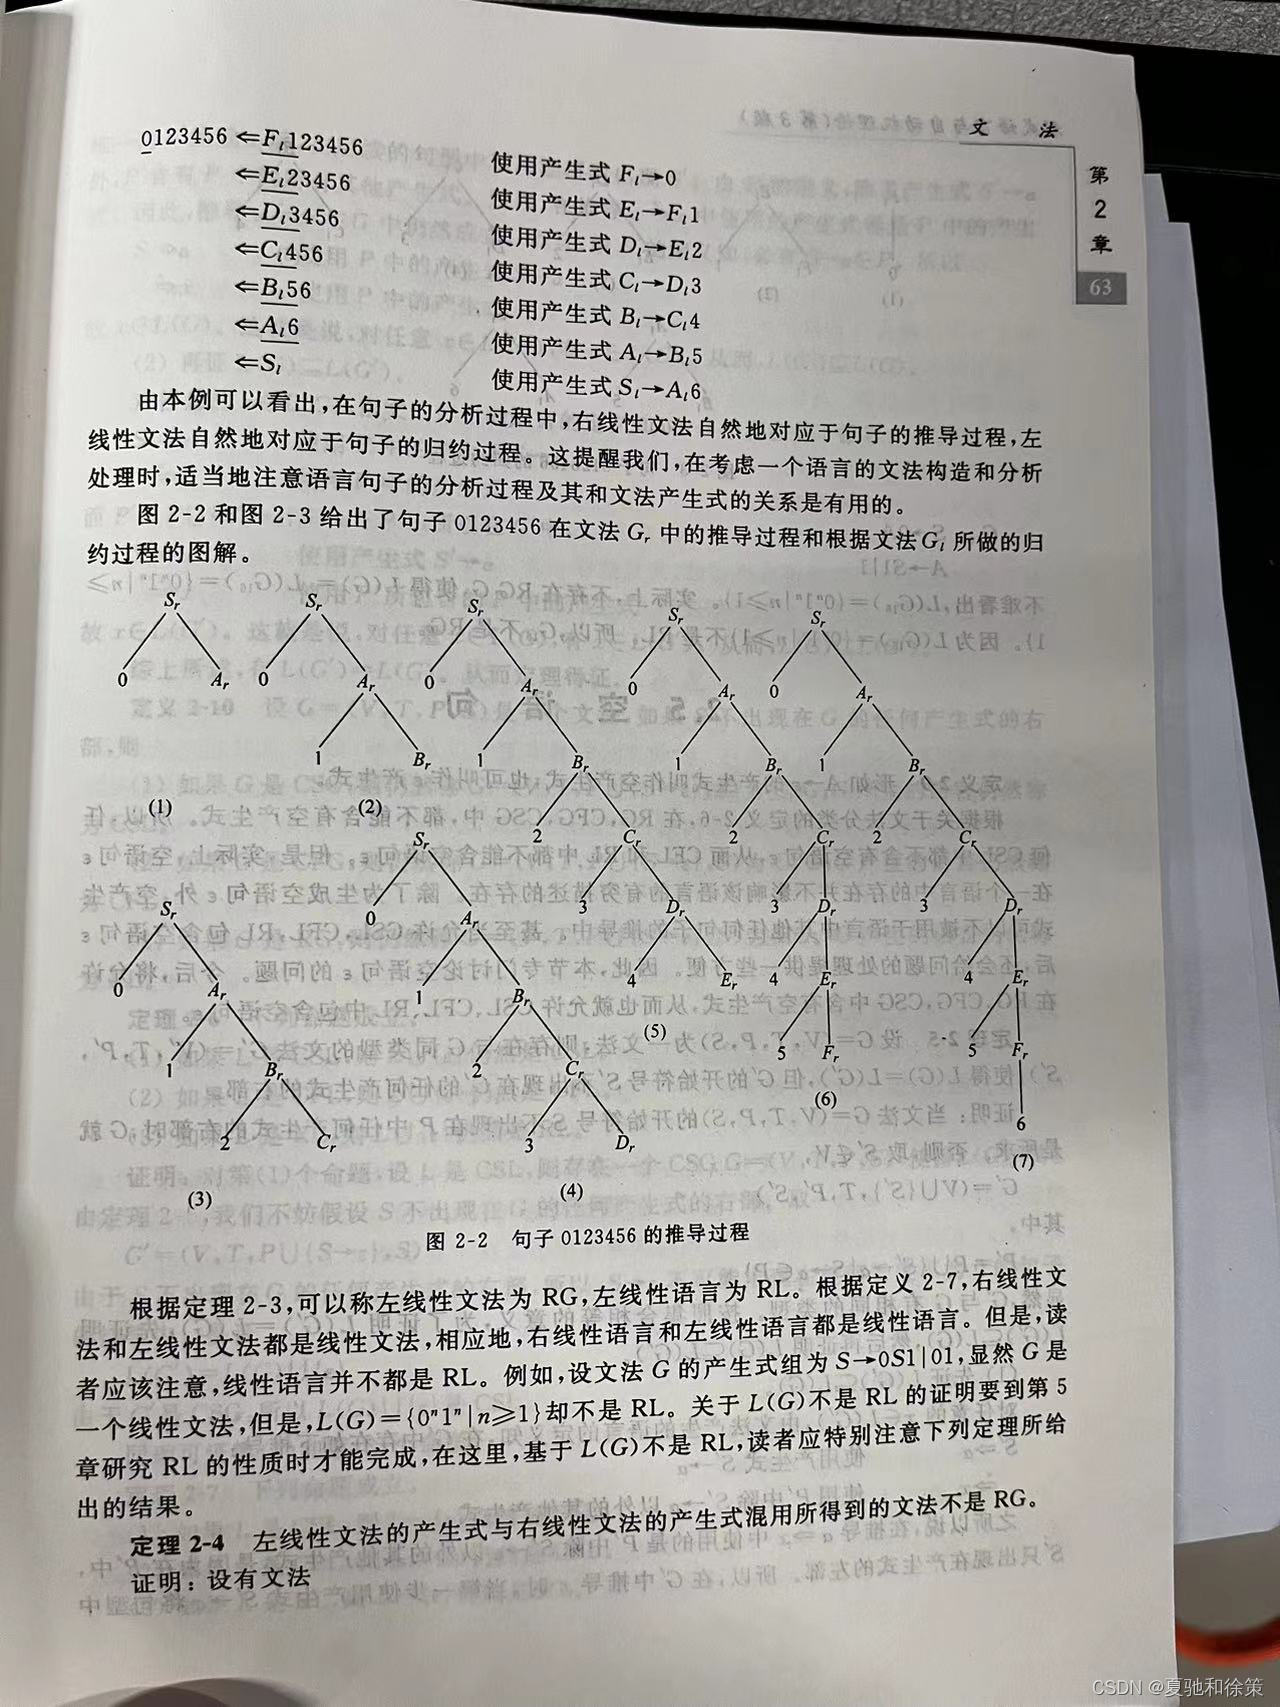 文 法
第
2
章
63
0123456 ⇐Fₗ123456 使用产生式 Fₗ→0
⇐Eₗ23456 使用产生式 Eₗ→Fₗ1
⇐Dₗ3456 使用产生式 Dₗ→Eₗ2
⇐Cₗ456 使用产生式 Cₗ→Dₗ3
⇐Bₗ56 使用产生式 Bₗ→Cₗ4
⇐Aₗ6 使用产生式 Aₗ→Bₗ5
⇐Sₗ 使用产生式 Sₗ→Aₗ6
由本例可以看出,在句子的分析过程中,右线性文法自然地对应于句子的推导过程,左
线性文法自然地对应于句子的归约过程。这提醒我们,在考虑一个语言的文法构造和分析
处理时,适当地注意语言句子的分析过程及其和文法产生式的关系是有用的。
图 2-2 和图 2-3 给出了句子 0123456 在文法 Gᵣ 中的推导过程和根据文法 Gₗ 所做的归
约过程的图解。
Sᵣ
0 Aᵣ
(1)
Sᵣ
0 Aᵣ
1 Bᵣ
(2)
Sᵣ
0 Aᵣ
1 Bᵣ
2 Cᵣ
(3)
Sᵣ
0 Aᵣ
1 Bᵣ
2 Cᵣ
3 Dᵣ
(4)
Sᵣ
0 Aᵣ
1 Bᵣ
2 Cᵣ
3 Dᵣ
4 Eᵣ
(5)
Sᵣ
0 Aᵣ
1 Bᵣ
2 Cᵣ
3 Dᵣ
4 Eᵣ
5 Fᵣ
(6)
Sᵣ
0 Aᵣ
1 Bᵣ
2 Cᵣ
3 Dᵣ
4 Eᵣ
5 Fᵣ
6
(7)
图 2-2 句子 0123456 的推导过程
根据定理 2-3,可以称左线性文法为 RG,左线性语言为 RL。根据定义 2-7,右线性文
法和左线性文法都是线性文法,相应地,右线性语言和左线性语言都是线性语言。但是,读
者应该注意,线性语言并不都是 RL。例如,设文法 G 的产生式组为 S→0S1|01,显然 G 是
一个线性文法,但是,L(G)={0ⁿ1ⁿ|n⩾1}却不是 RL。关于 L(G)不是 RL 的证明要到第 5
章研究 RL 的性质时才能完成,在这里,基于 L(G)不是 RL,读者应特别注意下列定理所给
出的结果。
定理 2-4 左线性文法的产生式与右线性文法的产生式混用所得到的文法不是 RG。
证明: 设有文法
CSDN @夏驰和徐策